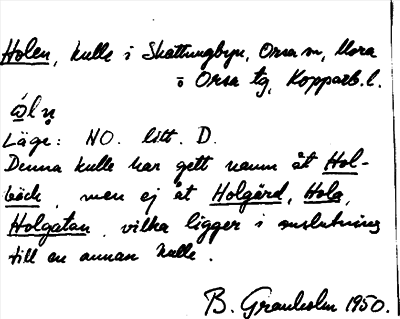 Holen, kulle i Skattungbyn, Orsa sn, Mora
o Orsa tg, Kopparb. l.
Läge: NO. litt. D.
Denna kulle har gett namn åt Hol-
bäck, men ej åt Holgärd, Hola,
Holgatan, vilka ligger i anslutning
till en annan kulle.
B. Granholm 1950.